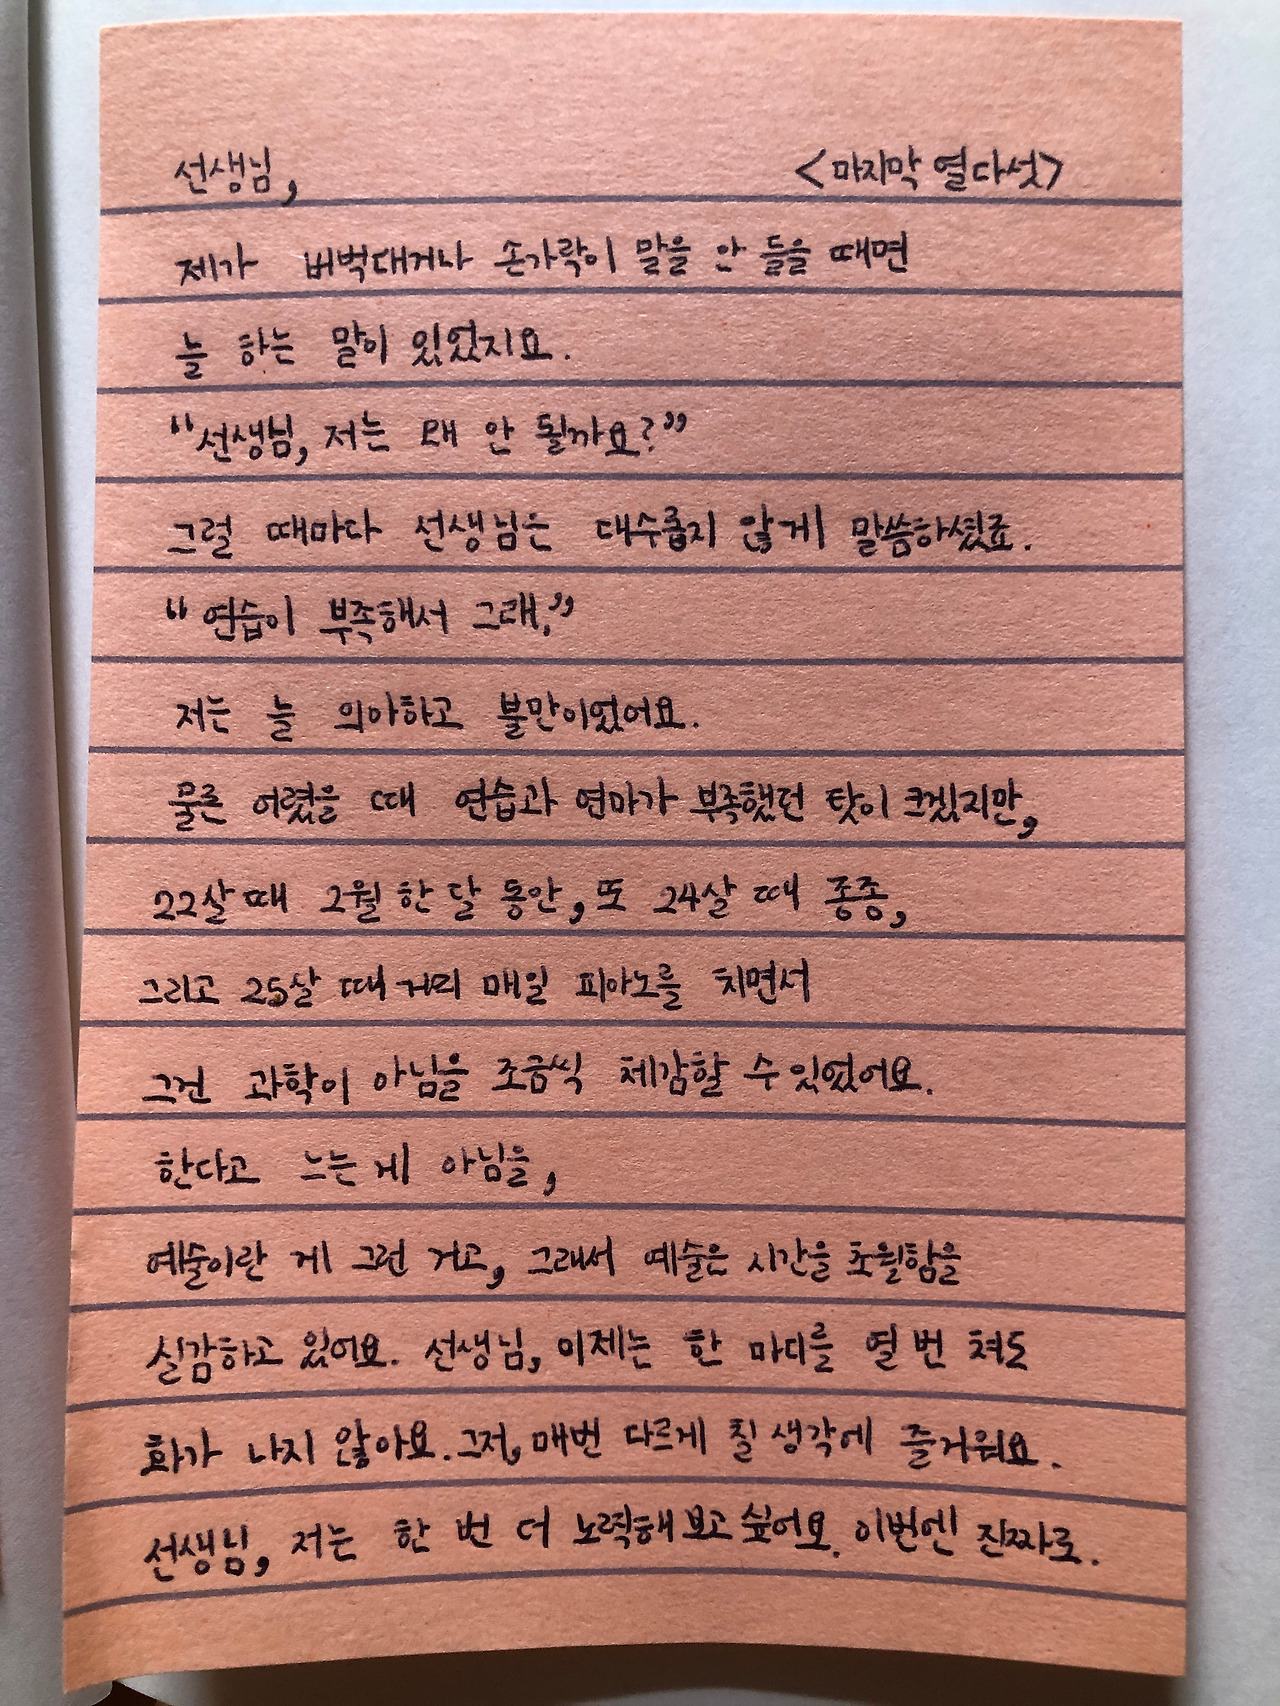 선생님, <마지막 열다섯>
제가 버벅대거나 손가락이 말을 안 들을 때면
늘 하는 말이 있었지요.
“선생님, 저는 왜 안 될까요?”
그럴 때마다 선생님은 대수롭지 않게 말씀하셨죠.
“연습이 부족해서 그래.”
저는 늘 의아하고 불만이었어요.
물론 어렸을 때 연습과 연마가 부족했던 탓이 크겠지만,
22살 때 2월 한 달 동안, 또 24살 때 종종,
그리고 25살 때 거의 매일 피아노를 치면서
그건 과학이 아님을 조금씩 체감할 수 있었어요.
한다고 느는 게 아님을,
예술이란 게 그런 거고, 그래서 예술은 시간을 초월함을
실감하고 있어요. 선생님, 이제는 한 마디를 열 번 쳐도
화가 나지 않아요. 그저, 매번 다르게 칠 생각에 즐거워요.
선생님, 저는 한 번 더 노력해보고 싶어요. 이번엔 진짜로.